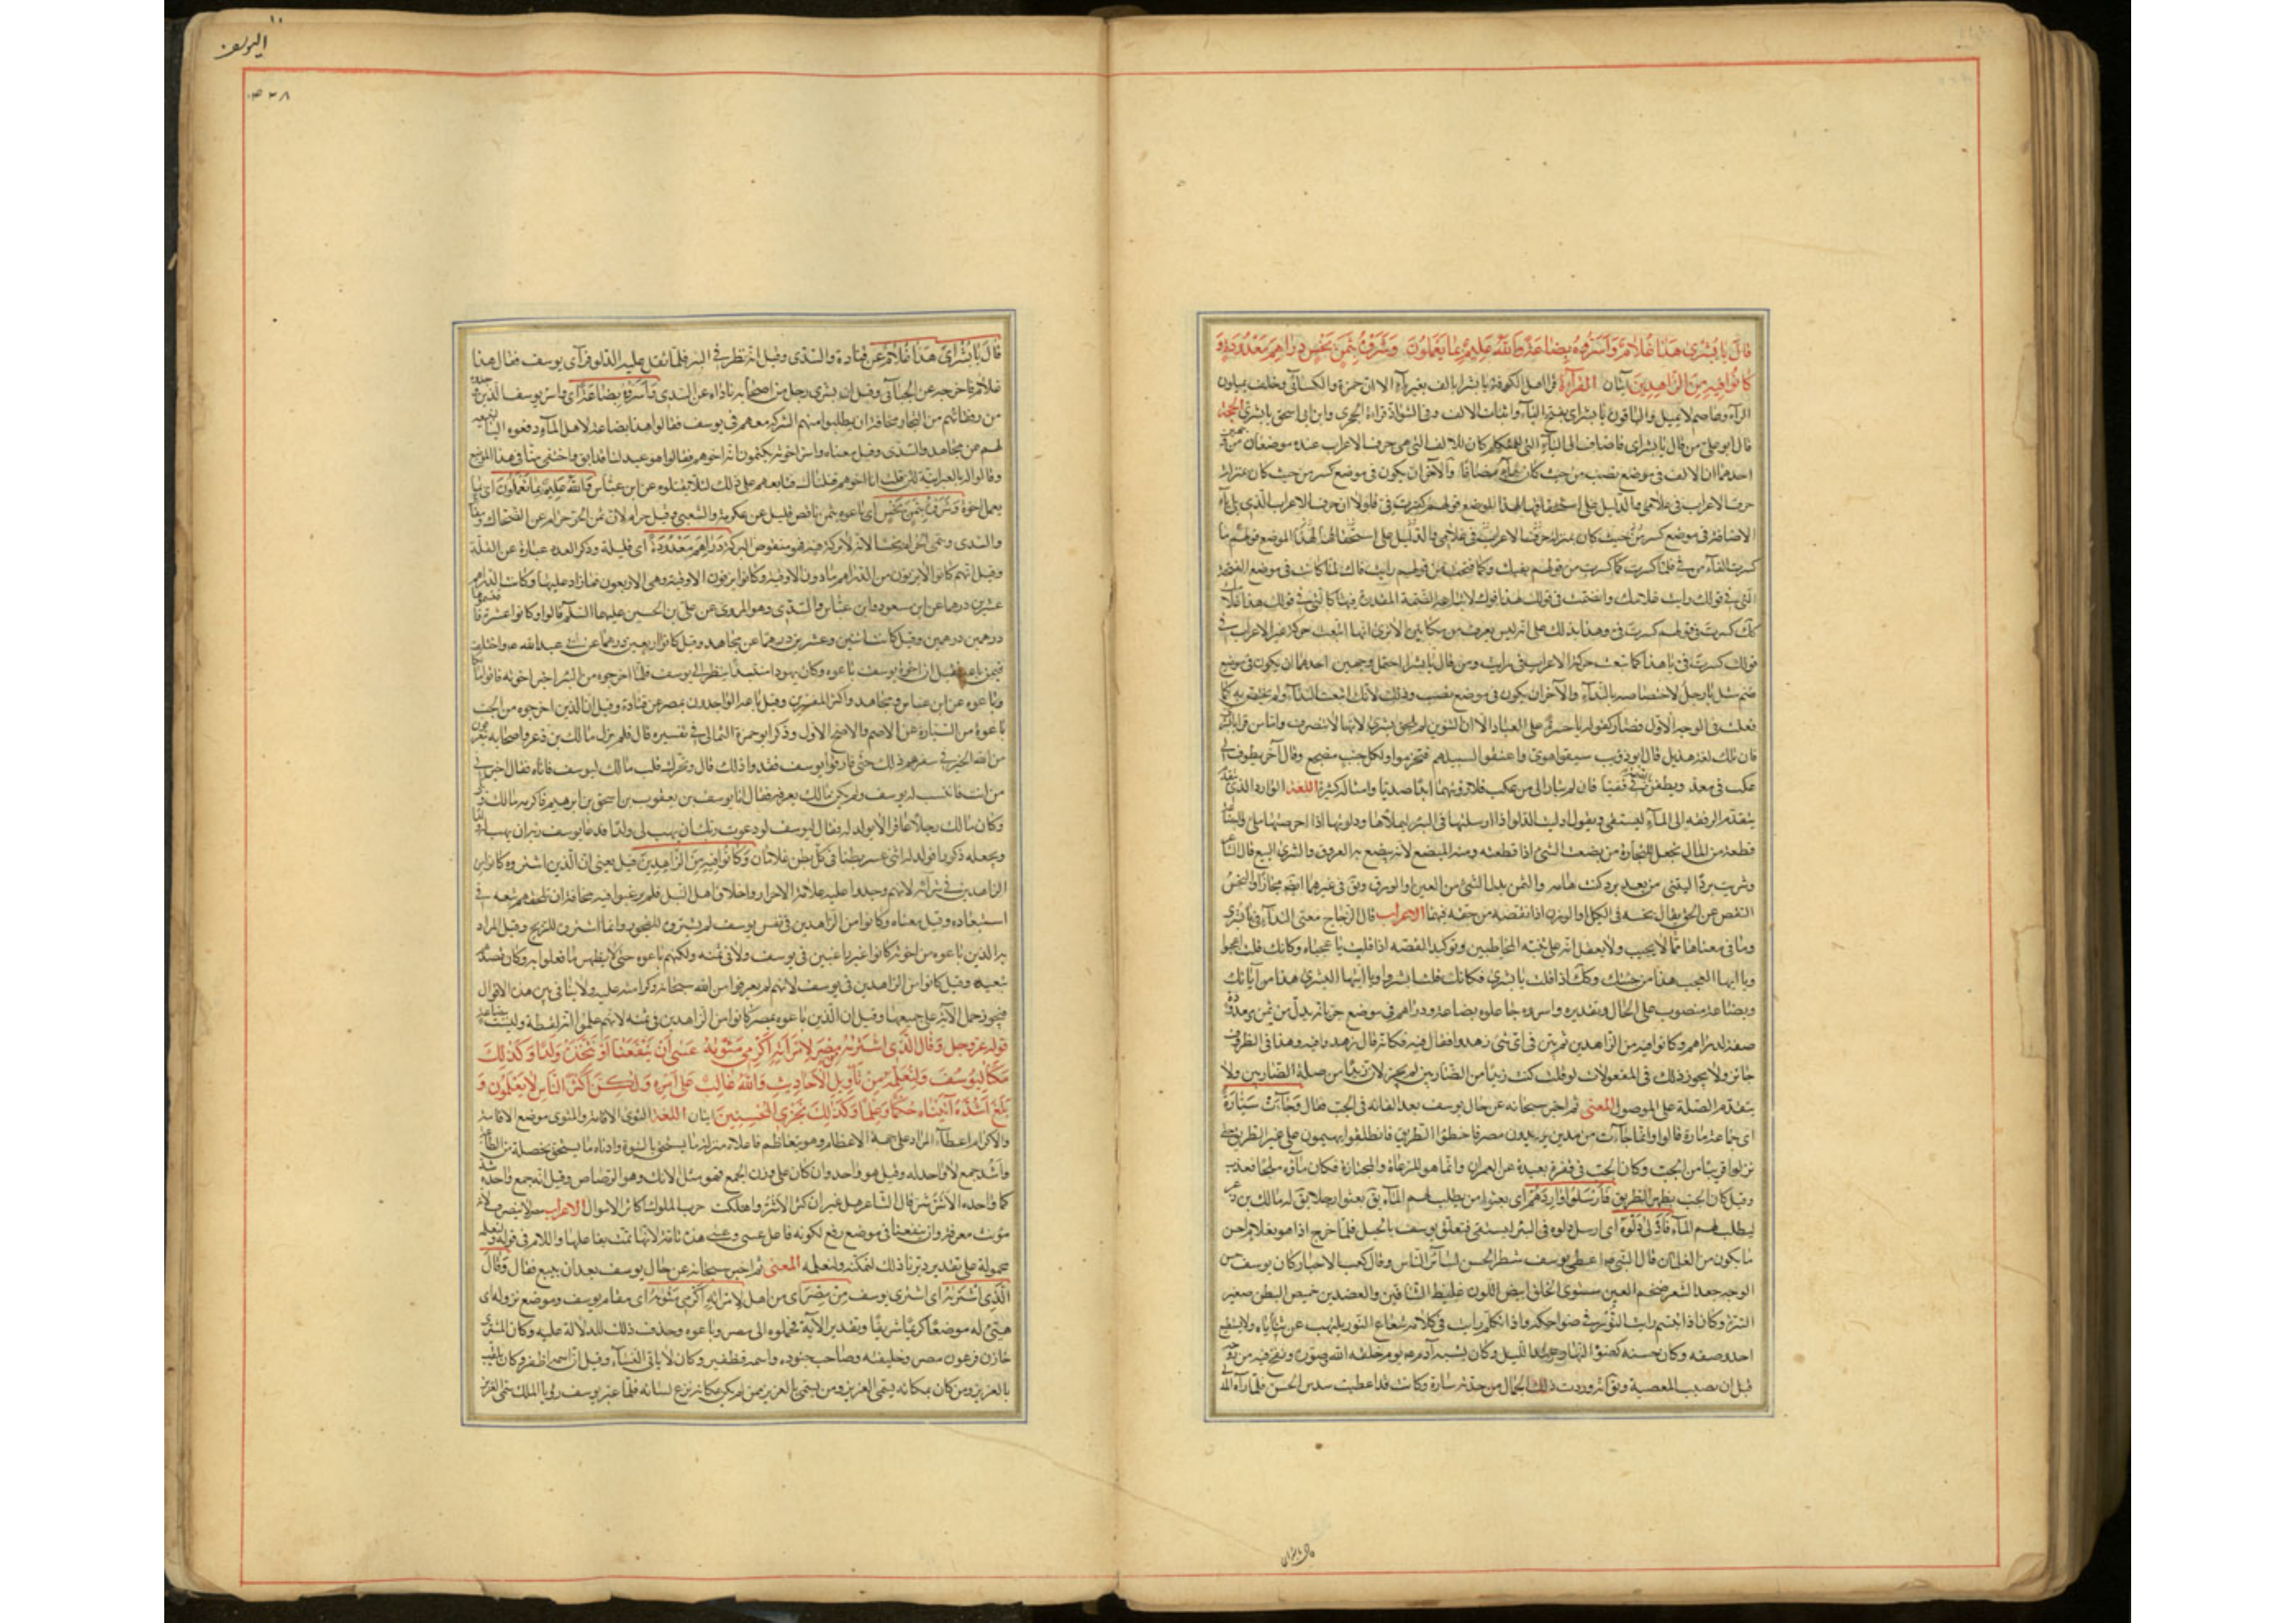 قال يا بشرى هذا غلام واسروه بضاعة والله عليم بما يعملون وشروه بثمن بخس دراهم معدودة و
كانوا فيه من الزاهدين آيتان القراءة قرا اهل الكوفة يا بشرى بالف بغير ياء الا ان حمزة والكسائي وخلف يميلون
الراء وعاصم لا يميل والباقون يا بشراى بفتح الياء واثبات الالف وفى الشواذ قراءة الجحدرى وابن ابى اسحق يا بشرى الحجة
قال ابو على من قال يا بشراى فاضاف الى الياء التى للمتكلم كان للالف التى هى حرف الاعراب عنده موضعان من
احدهما ان الالف فى موضع نصب من حيث كان نداء مضافا والآخر ان يكون فى موضع كسر من حيث كان بمنزلة
حرف الاعراب فى غلامى والدليل على استحقاقها لهذا الموضع قولهم كسرت فى فلولا ان حرف الاعراب الذى يلى ياء
الاضافة فى موضع كسر من حيث كان بمنزلة حرف الاعراب فى غلامى والدليل على استحقاقها لهذا الموضع قولهم ما
كسرت الفاء من فى فلما كسرت كما كسرت من قولهم بفيك وكما فتحت من قولهم رايت فاك لما كانت فى موضع الفتحة
التى فى قولك رايت غلامك وانضمت فى قولك هذا فوك لاتباعه الضمة المقدرة فيها كالتى فى قولك هذا غلامك
كذلك كسرت فى قولهم كسرت فى وهذا يدلك على انه ليس يعرف من مكانين الا ترى انها اتبعت حركة غير الاعراب فى
قولك كسرت فى يا هذا كما تبعت حركة الاعراب فى رايت ومن قال يا بشرا احتمل وجهين احدهما ان يكون فى موضع
ضم مثل يا رجل لاختصاصه بالنداء والآخر ان يكون فى موضع نصب وذلك لانك اشعت النداء ولم تخص به كما
فعلت فى الوجه الاول فصار كقوله يا حسرة على العباد الا ان التنوين لم يلحق بشرى لانها لا تنصرف واما من قرا يا بشرى
فان تلك لغة هذيل قال ابو ذؤيب سبقوا هوى واعنقوا لسبيلهم فتخرموا ولكل جنب مصرع وقال آخر يطوف بى
عكب فى معد ويطعن بالصملة فى قفيا فان لم تثارا لى من عكب فلا رويتما ابدا صديا وامثاله كثيرة اللغة الوارد الذى
يتقدم الرفقة الى الماء ليستقى ويقول ادليت الدلو اذا ارسلتها فى البئر لتملاها ودلوتها اذا اخرجتها ملاى والبضاعة
قطعة من المال تجعل للتجارة من بضعت الشئ اذا قطعته ومنه المبضع لانه يبضع به العروق والشرى البيع قال الشاعر
وشريت بردا ليتنى من بعد برد كنت هامه والثمن بدل الشئ من العين او الورق وفى غيرهما ايضا مجازا والبخس
النقص من الحق يقال بخسه فى الكيل او الوزن اذا نقصه من حقه فيهما الاعراب قال الزجاج معنى النداء فى يا بشرى
وما فى معناها مما لا يجيب ولا يعقل انه على تنبيه المخاطبين وتوكيد القصة اذا قلت يا عجباه وكانك قلت اعجبوا
ويا ايها العجب هذا من حينك وكذلك اذا قلت يا بشرى فكانك قلت ابشروا ويا ايتها البشرى هذا من آياتك
وبضاعة منصوب على الحال وتقديره واسروه جاعلوه بضاعة ودراهم فى موضع جر بانه بدل من ثمن ومعدودة
صفة لدراهم وكانوا فيه من الزاهدين ثم بين فى اى شئ زهدوا فقال فيه فكانه قال زهدوا فيه وهذا فى الظروف
جائز ولا يجوز ذلك فى المفعولات لو قلت كنت زيدا من الضاربين لم يجز لان زيدا من صلة الضاربين ولا
يتقدم الصلة على الموصول المعنى ثم اخبر سبحانه عن حال يوسف بعد القائه فى الجب فقال وجاءت سيارة
اى جماعة مارة قالوا وانما جاءت من مدين يريدون مصر فاخطؤا الطريق فانطلقوا يهيمون على غير الطريق حتى
نزلوا قريبا من الجب وكان الجب فى قفرة بعيدة عن العمران وانما هو للرعاة والمجتازة فكان ماؤه ملحا فعذب
وقيل كان الجب بظهر الطريق فارسلوا واردهم اى بعثوا من يطلب لهم الماء يق بعثوا رجلا يق له مالك بن ذعر
ليطلب لهم الماء فادلى دلوه اى ارسل دلوه فى البئر ليستقى فتعلق يوسف بالحبل فلما خرج اذا هو بغلام احسن
ما يكون من الغلمان قال النبى ص اعطى يوسف شطر الحسن لسائر الناس وقال كعب الاحبار كان يوسف حسن
الوجه جعد الشعر ضخم العين مستوى الخلق ابيض اللون غليظ الساقين والعضدين خميص البطن صغير
السرة وكان اذا ابتسم رايت النور فى ضواحكه واذا تكلم رايت فى كلامه شعاع النور يلتهب عن ثناياه ولا يستطيع
احد وصفه وكان حسنه كضوء النهار عند الليل وكان يشبه آدم ع يوم خلقه الله وصوره ونفخ فيه من روحه
قبل ان يصيب المعصية ويق انه ورث ذلك الجمال من جدته سارة وكانت قد اعطيت سدس الحسن فلما رآه المدلى
قال يا بشرى
قال يا بشراى هذا غلام عن قتادة والسدى وقيل انه نظر فى البئر فلما ثقل عليه الدلو فرآى يوسف فقال هذا
غلام فاخرجه عن الجبائى وقيل ان بشرى رجل من اصحابه ناداه عن السدى واسروه بضاعة اى واسر يوسف الذين وجدوه
من رفقائهم من التجار مخافة ان يطلبوا منهم الشركة معهم فى يوسف فقالوا هذا بضاعة لاهل الماء دفعوه الينا لنبيعه
لهم عن مجاهد والسدى وقيل معناه واسر اخوته يكتمون انه اخوهم فقالوا هو عبد لنا قد ابق واختفى منا فى هذا الموضع
وقالوا له بالعبرانية لئن قلت انا اخوهم قتلناك فتابعهم على ذلك لئلا يقتلوه عن ابن عباس والله عليم بما يعملون اى بما
يعمل اخوة يوسف وشروه بثمن بخس اى باعوه بثمن ناقص قليل عن عكرمة والشعبى وقيل حرام لان ثمن الحر حرام عن الضحاك
والسدى وسمى الحرام بخسا لانه لا بركة فيه فهو منقوص البركة دراهم معدودة اى قليلة وذكر العدد عبارة عن القلة
وقيل انهم كانوا لا يزنون من الدراهم ما دون الاوقية وكانوا يزنون الاوقية وهى الاربعون فما زاد عليها وكانت الدراهم
عشرين درهما عن ابن سعود وابن عباس والسدى وهو المروى عن على بن الحسين عليهما السلم قالوا وكانوا عشرة فاقتسموها
درهمين درهمين وقيل كانت اثنين وعشرين درهما عن مجاهد وقيل كانوا اربعين درهما عن ابى عبد الله ع واختلف
فيمن باعه فقيل ان اخوة يوسف باعوه وكان يهودا منتبذا ينظر الى يوسف فلما اخرجوه من البئر اخبر اخوته فاتوا مالكا
وباعوه عن ابن عباس ومجاهد واكثر المفسرين وقيل باعه الواجدون بمصر عن قتادة وقيل ان الذين اخرجوه من الجب
باعوه من السيارة عن الاصم والاصح الاول وذكر ابو حمزة الثمالى فى تفسيره قال فلم يزل مالك بن ذعر واصحابه يتعرفون
من الله الخير فى سفرهم ذلك حتى فارقوا يوسف ففقدوا ذلك قال وتحرك قلب مالك ليوسف فاتاه فقال اخبرنى
من انت فانتسب له يوسف ولم يكن مالك يعرفه فقال انا يوسف بن يعقوب بن اسحق بن ابرهيم فاكرمه مالك
وكان مالك رجلا عاقرا لا يولد له فقال ليوسف لو دعوت ربك ان يهب لى ولدا فدعا يوسف ربه ان يهب له ولدا
ويجعله ذكرا فولد له اثنى عشر بطنا فى كل بطن غلامان وكانوا فيه من الزاهدين قيل يعنى ان الذين اشتروه كانوا من
الزاهدين فى شرائه لانهم وجدوا عليه علامة الاحرار واخلاق اهل النبل فلم يرغبوا فيه مخافة ان تلحقهم تبعة فى
استعباده وقيل معناه وكانوا من الزاهدين فى نفس يوسف لم يشتروه للفجور وانما اشتروه للربح وقيل المراد
به الذين باعوه من اخوته كانوا غير راغبين فى يوسف ولا فى ثمنه ولكنهم باعوه حتى لا يظهر ما فعلوا به وكان قصدهم
تبعيده وقيل كانوا من الزاهدين فى يوسف لانهم لم يعرفوا من الله سبحانه وكرامته عليه ولا ينافى بين هذه الاقوال
فيجوز حمل الآية على جميعها وقيل ان الذين باعوه بمصر كانوا من الزاهدين فى ثمنه لانهم علموا انه لقطة وليست بضاعة
قوله عز وجل وقال الذى اشتريه من مصر لامراته اكرمى مثويه عسى ان ينفعنا او نتخذه ولدا وكذلك
مكنا ليوسف ولنعلمه من تاويل الاحاديث والله غالب على امره ولكن اكثر الناس لا يعلمون و
بلغ اشده آتيناه حكما وعلما وكذلك نجزى المحسنين آيتان اللغة الثوى الاقامة والمثوى موضع الاقامة
والاكرام اعطاء المراد على جهة الاعظام وهو يتعاظم فاعلاه منزلة ما يستحق بالنبوة وادناه ما يستحق بخصلة من الطاعة
واشد جمع لا واحد له وقيل هو واحد وان كان على وزن الجمع فهو مثل الآنك وهو الرصاص وقيل انه جمع واحده شدة
كما واحده الاشر شر قال الشاعر هل غير ان كثر الاشر واهلكت حرب الملوك اكاثر الاموال الاعراب مصر لا ينصرف لانه
مؤنث معرفة وان ينفعنا فى موضع رفع لكونه فاعل عسى وعسى هذه تامة لانها تمت بفاعلها واللام فى قوله ولنعلمه
محمولة على تقدير دبرنا ذلك لنمكنه ولنعلمه المعنى ثم اخبر سبحانه عن حال يوسف بعد ان بيع فقال وقال
الذى اشتريه اى اشترى يوسف من مصر اى من اهل مصر لامراته اكرمى مثويه اى مقام يوسف وموضع نزوله اى
هيئى له موضعا كريما شريفا وتقدير الآية فحملوه الى مصر وباعوه وحذف ذلك للدلالة عليه وكان المشترى
خازن فرعون مصر وخليفته وصاحب جنوده واسمه قطفير وكان لا ياتى النساء وقيل ان اسمه اظفير وكان يلقب
بالعزيز ومن كان بمكانه يسمى العزيز ومن يسمى بالعزيز ممن لم يكن بمكانه نزع لسانه فلما عبر يوسف رؤيا الملك سمى العزيز